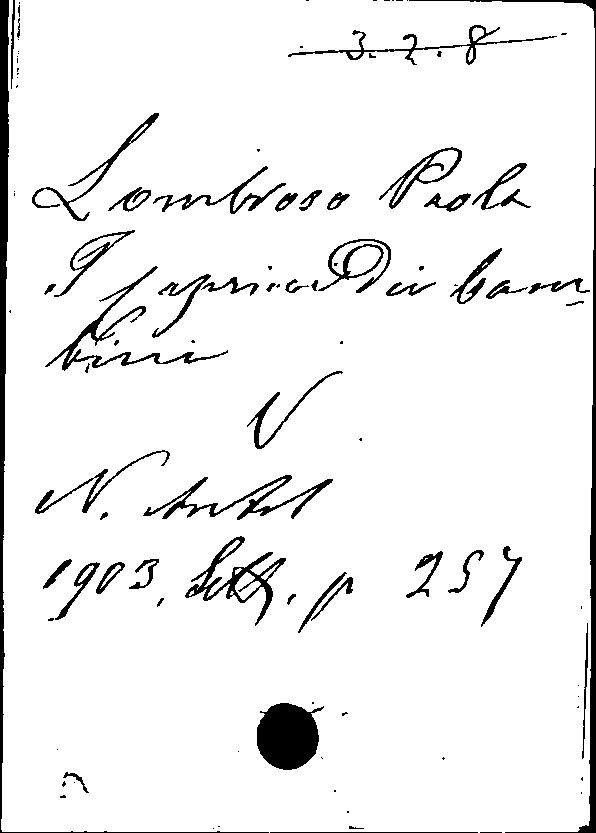 3. 2. 8
Lombroso Paola
I capricci Dei bam-
bini
V
N. Antol
1903, Sett. p 257